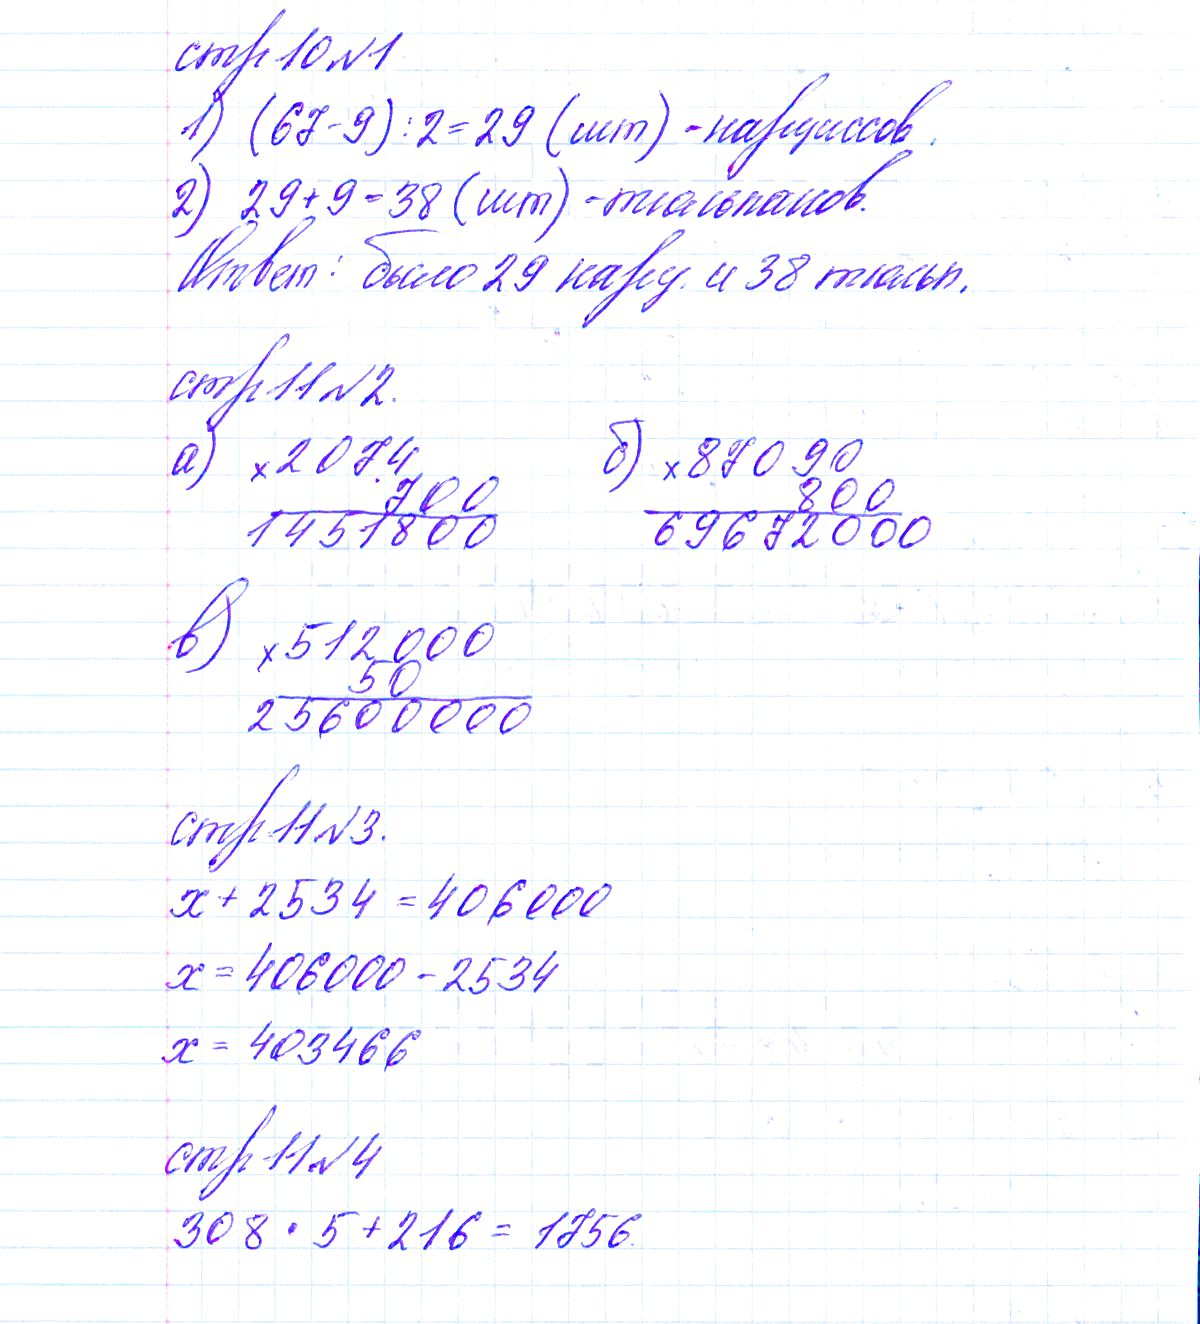 стр 10 №1
1) (67-9):2=29 (шт) - нарциссов.
2) 29+9=38 (шт) - тюльпанов.
Ответ: было 29 нарц. и 38 тюльп.
стр 11 №2.
а) × 2074 б) × 87090
700 800
1451800 69672000
в) × 512000
50
25600000
стр 11 №3.
х + 2534 = 406000
х = 406000 - 2534
х = 403466
стр 11 №4
308 · 5 + 216 = 1756.